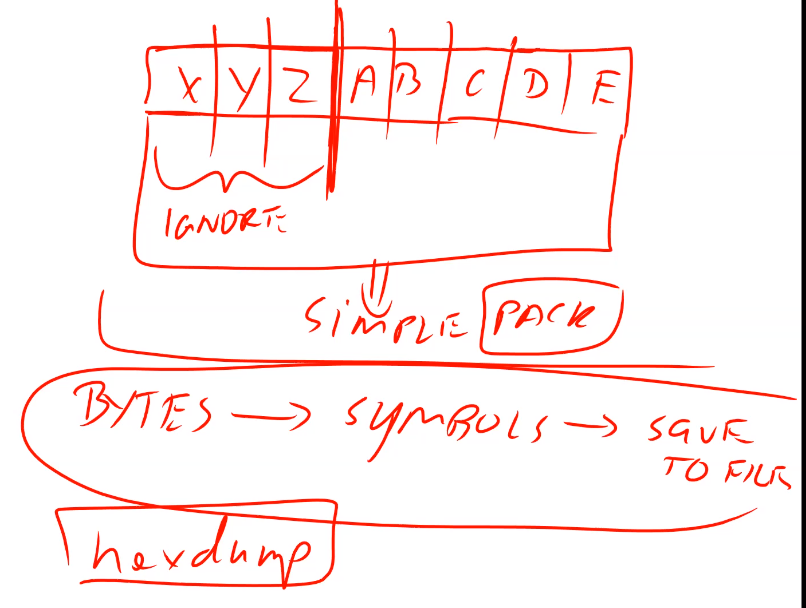 X Y Z A B C D E
IGNORE
SIMPLE PACK
BYTES → SYMBOLS → SAVE
TO FILE
hexdump